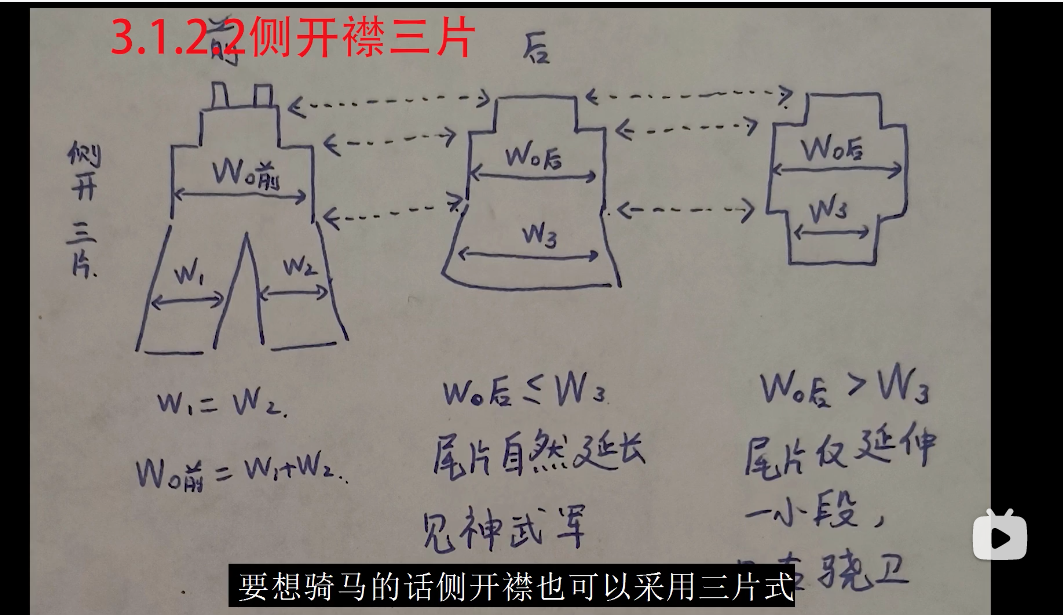 3.1.2.2侧开襟三片
前
后
侧开三片.
W₀前
W₁
W₂
W₀后
W₃
W₀后
W₃
W₁=W₂.
W₀前=W₁+W₂..
W₀后≤W₃
尾片自然延长
见神武军
W₀后>W₃
尾片仅延伸
一小段，
骁卫
要想骑马的话侧开襟也可以采用三片式